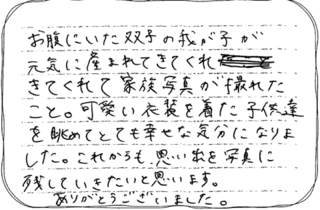 お腹にいた双子の我が子が
元気に産まれてきてくれ
きてくれて家族写真が撮れた
こと。可愛い衣装を着た子供達
を眺めてとても幸せな気分になりま
した。これからも、思い出を写真に
残していきたいと思います。
ありがとうございました。